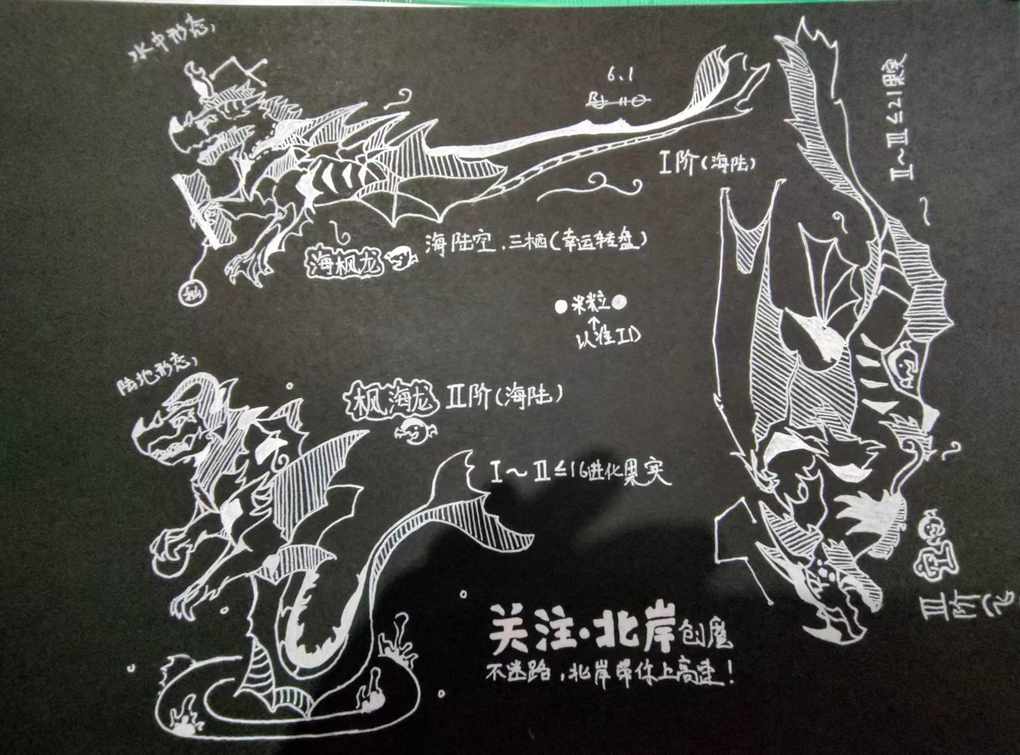 水中形态,
6.1
I阶(海陆)
I～II≤21果实
海枫龙
海陆空.三栖(幸运转盘)
米粒
↑
认准ID
陆地形态,
枫海龙 II阶(海陆)
I～II≤16进化果实
II阶飞
关注·北岸创魔
不迷路,北岸带你上高速!